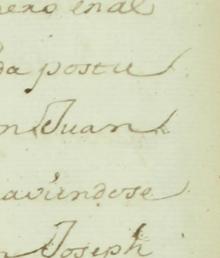 nero en al
da postu
n Juan
aviendose
n Joseph